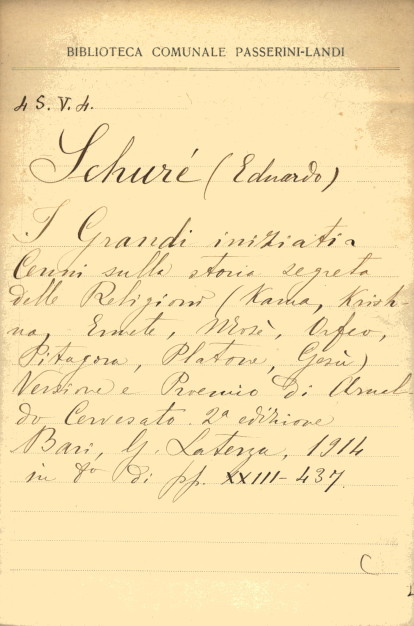 BIBLIOTECA COMUNALE PASSERINI-LANDI
4 S. V. 4.
Schuré (Eduardo)
I Grandi iniziati.
Cenni sulla storia segreta
delle Religioni (Rama, Krish-
na, Ermete, Mosè, Orfeo,
Pitagora, Platone, Gesù)
Versione e Proemio di Arnal-
do Cervesato. 2ª edizione
Bari, G. Laterza, 1914
in 8° di pp. XXIII-437.
C